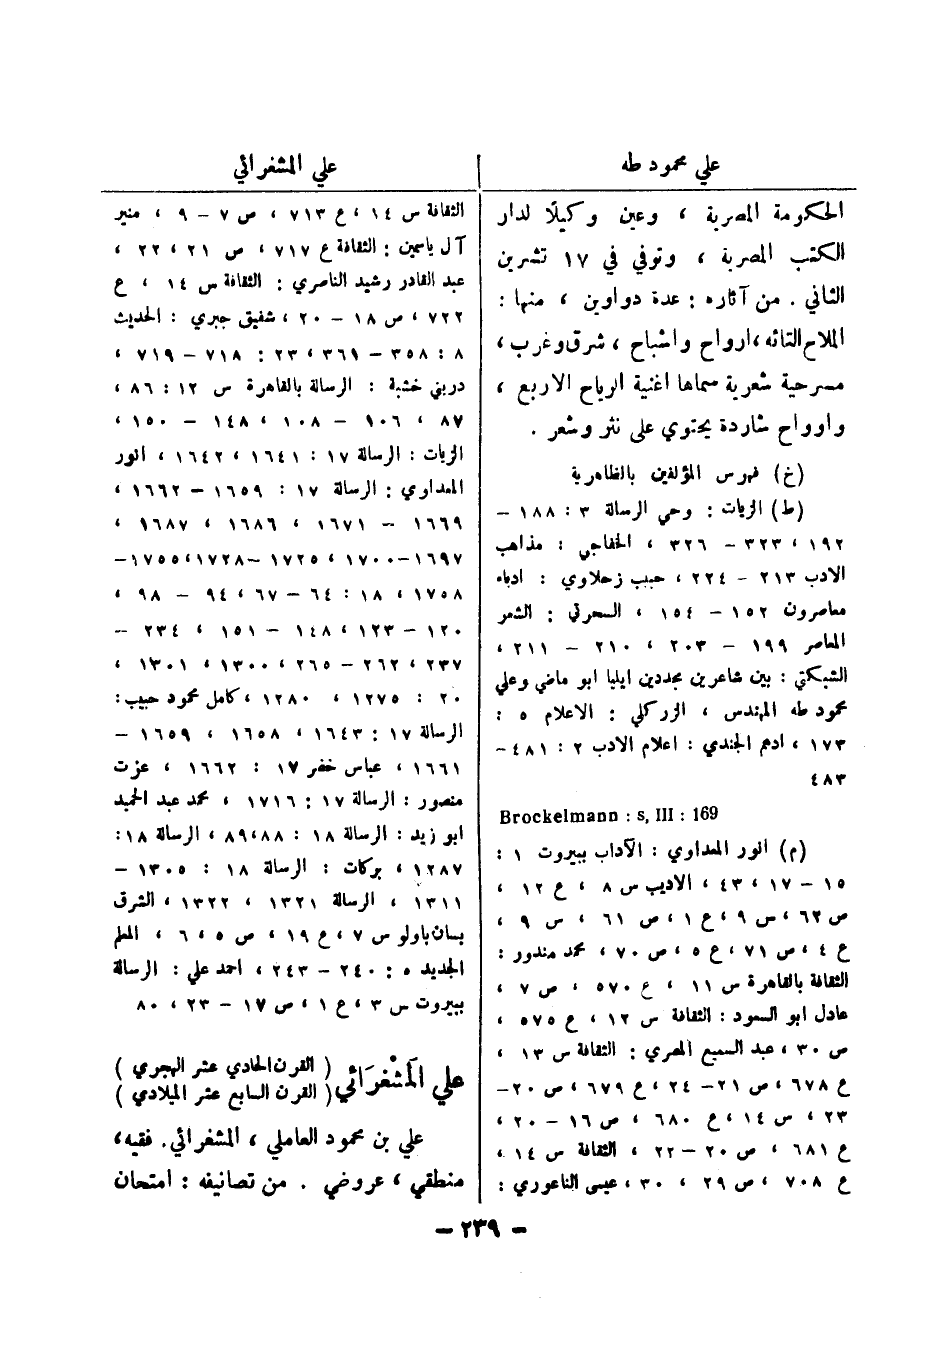 علي محمود طه
علي المشغرائي
الحكومة المصرية ، وعين وكيلًا لدار
الكتب المصرية ، وتوفي في ١٧ تشرين
الثاني . من آثاره : عدة دواوين ، منها :
الملاح التائه ، ارواح واشباح ، شرق وغرب ،
مسرحية شعرية سماها اغنية الرياح الاربع ،
وارواح شاردة يحتوي على نثر وشعر .
(خ) فهرس المؤلفين بالظاهرية
(ط) الزيات : وحي الرسالة ٣ : ١٨٨ –
١٩٢ ، ٣٢٣ – ٣٢٦ ، الخفاجي : مذاهب
الادب ٢١٣ – ٢٢٤ ، حبيب زحلاوي : ادباء
معاصرون ١٥٢ – ١٥٤ ، السحرتي : الشعر
المعاصر ١٩٩ – ٢٠٣ ، ٢١٠ – ٢١١ ،
الشبكتي : بين شاعرين مجددين ايليا ابو ماضي وعلي
محمود طه المهندس ، الزركلي : الاعلام ٥ :
١٧٣ ، ادهم الجندي : اعلام الادب ٢ : ٤٨١ –
٤٨٣
Brockelmann : s, III : 169
(م) انور المعداوي : الآداب ببيروت ١ :
١٥ – ١٧ ، ٤٣ ، الاديب س ٨ ، ع ١٢ ،
ص ٦٢ ، س ٩ ، ع ١ ، ص ٦١ ، س ٩ ،
ع ٤ ، ص ٧١ ، ع ٥ ، ص ٧٠ ، محمد مندور :
الثقافة بالقاهرة س ١١ ، ع ٥٧٠ ، ص ٧ ،
عادل ابو السعود : الثقافة س ١٢ ، ع ٥٧٥ ،
ص ٣٠ ، عبد السميع المصري : الثقافة س ١٣ ،
ع ٦٧٨ ، ص ٢١ – ٢٤ ، ع ٦٧٩ ، ص ٢٠ –
٢٣ ، س ١٤ ، ع ٦٨٠ ، ص ١٦ – ٢٠ ،
ع ٦٨١ ، ص ٢٠ – ٢٢ ، الثقافة س ١٤ ،
ع ٧٠٨ ، ص ٢٩ ، ٣٠ ، عيسى الناعوري :
الثقافة س ١٤ ، ع ٧١٣ ، ص ٧ – ٩ ، منير
آل ياسين : الثقافة ع ٧١٧ ، ص ٢١ ، ٢٢ ،
عبد القادر رشيد الناصري : الثقافة س ١٤ ، ع
٧٢٢ ، ص ١٨ – ٢٠ ، شفيق جبري : الحديث
٨ : ٣٥٨ – ٣٦٩ ، ٢٣ : ٧١٨ – ٧١٩ ،
دريني خشبة : الرسالة بالقاهرة س ١٢ : ٨٦ ،
٨٧ ، ١٠٦ – ١٠٨ ، ١٤٨ – ١٥٠ ،
الزيات : الرسالة ١٧ : ١٦٤١ ، ١٦٤٢ ، انور
المعداوي : الرسالة ١٧ : ١٦٥٩ – ١٦٦٢ ،
١٦٦٩ – ١٦٧١ ، ١٦٨٦ ، ١٦٨٧ ،
١٦٩٧ – ١٧٠٠ ، ١٧٢٥ – ١٧٢٨ ، ١٧٥٥ –
١٧٥٨ ، ١٨ : ٦٤ – ٦٧ ، ٩٤ – ٩٨ ،
١٢٠ – ١٢٣ ، ١٤٨ – ١٥١ ، ٢٣٤ –
٢٣٧ ، ٢٦٢ – ٢٦٥ ، ١٣٠٠ ، ١٣٠١ ،
٢٠ : ١٢٧٥ ، ١٢٨٠ ، كامل محمود حبيب :
الرسالة ١٧ : ١٦٤٣ ، ١٦٥٨ ، ١٦٥٩ –
١٦٦١ ، عباس خضر ١٧ : ١٦٦٢ ، عزت
منصور : الرسالة ١٧ : ١٧١٦ ، محمد عبد الحميد
ابو زيد : الرسالة ١٨ : ٨٨ ، ٨٩ ، الرسالة ١٨ :
١٢٨٧ ، بركات : الرسالة ١٨ : ١٣٠٥ –
١٣١١ ، الرسالة ١٣٢١ ، ١٣٢٢ ، الشرق
بسان باولو س ٧ ، ع ١٩ ، ص ٥ ، ٦ ، المعلم
الجديد ٥ : ٢٤٠ – ٢٤٣ ، احمد علي : الرسالة
ببيروت س ٣ ، ع ١ ، ص ١٧ – ٢٣ ، ٨٠
علي المَشْغَرَائي
( القرن الحادي عشر الهجري )
( القرن السابع عشر الميلادي )
علي بن محمود العاملي ، المشغرائي . فقيه ،
منطقي ، عروضي . من تصانيفه : امتحان
– ٢٣٩ –